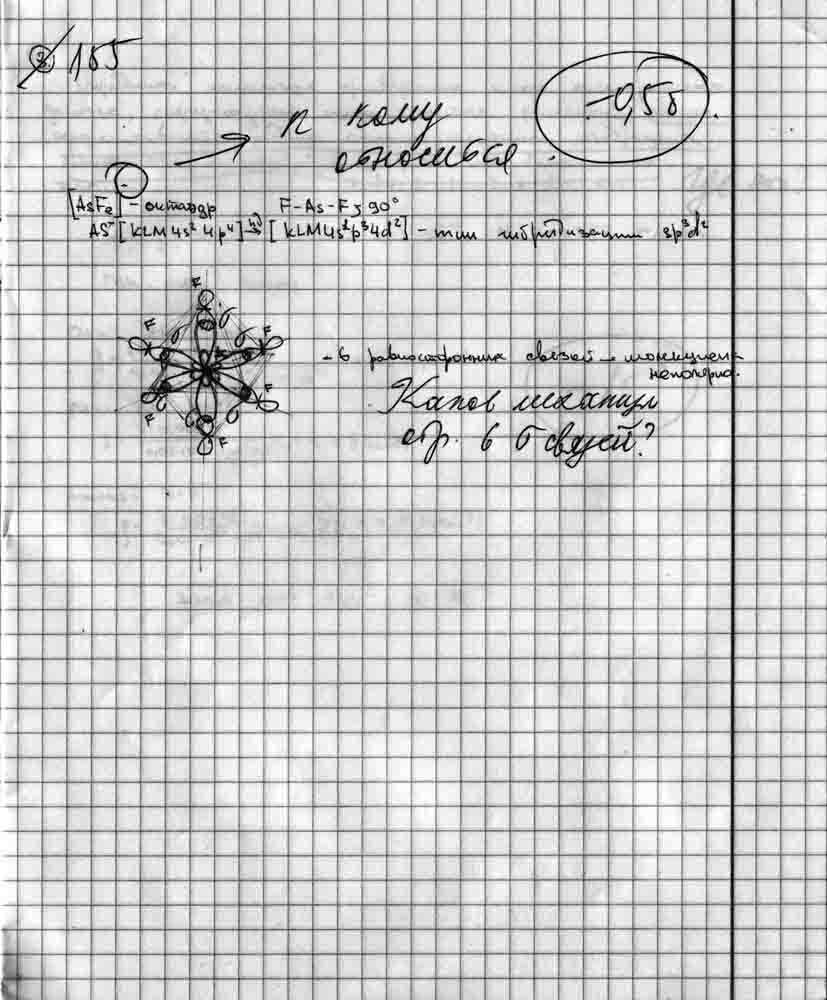 3. 165
к кому
относиться
-0,5б
[AsF6]⁻ - октаэдр F-As-F 90°
As⁻ [KLM4s²4p⁴] → [KLM4s¹p³4d²] - тип гибридизации sp³d²
F
F F
σ σ
σ σ
F F
F
- 6 равносторонних связей - молекула неполярна.
Каков механизм
обр. 6 σ связей?